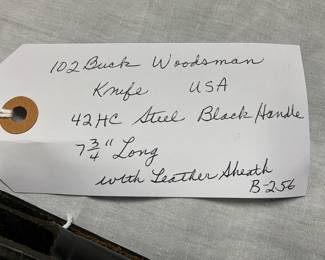 102 Buck Woodsman
Knife USA
42HC Steel Black Handle
7 3/4" Long
with Leather Sheath
B-256